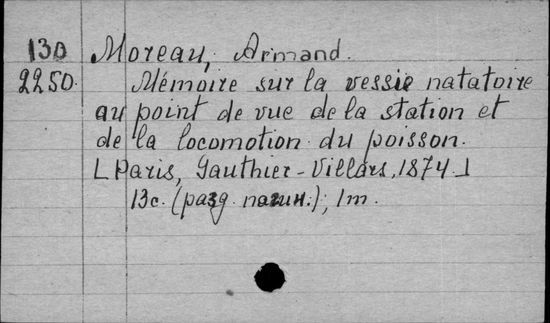 130 Moreau, Armand.
2250. Mémoire sur la vessie natatoire
au point de vue de la station et
de la locomotion du poisson.
[Paris, Gauthier-Villars, 1874.]
13с. (разд. пагин.), 1m.